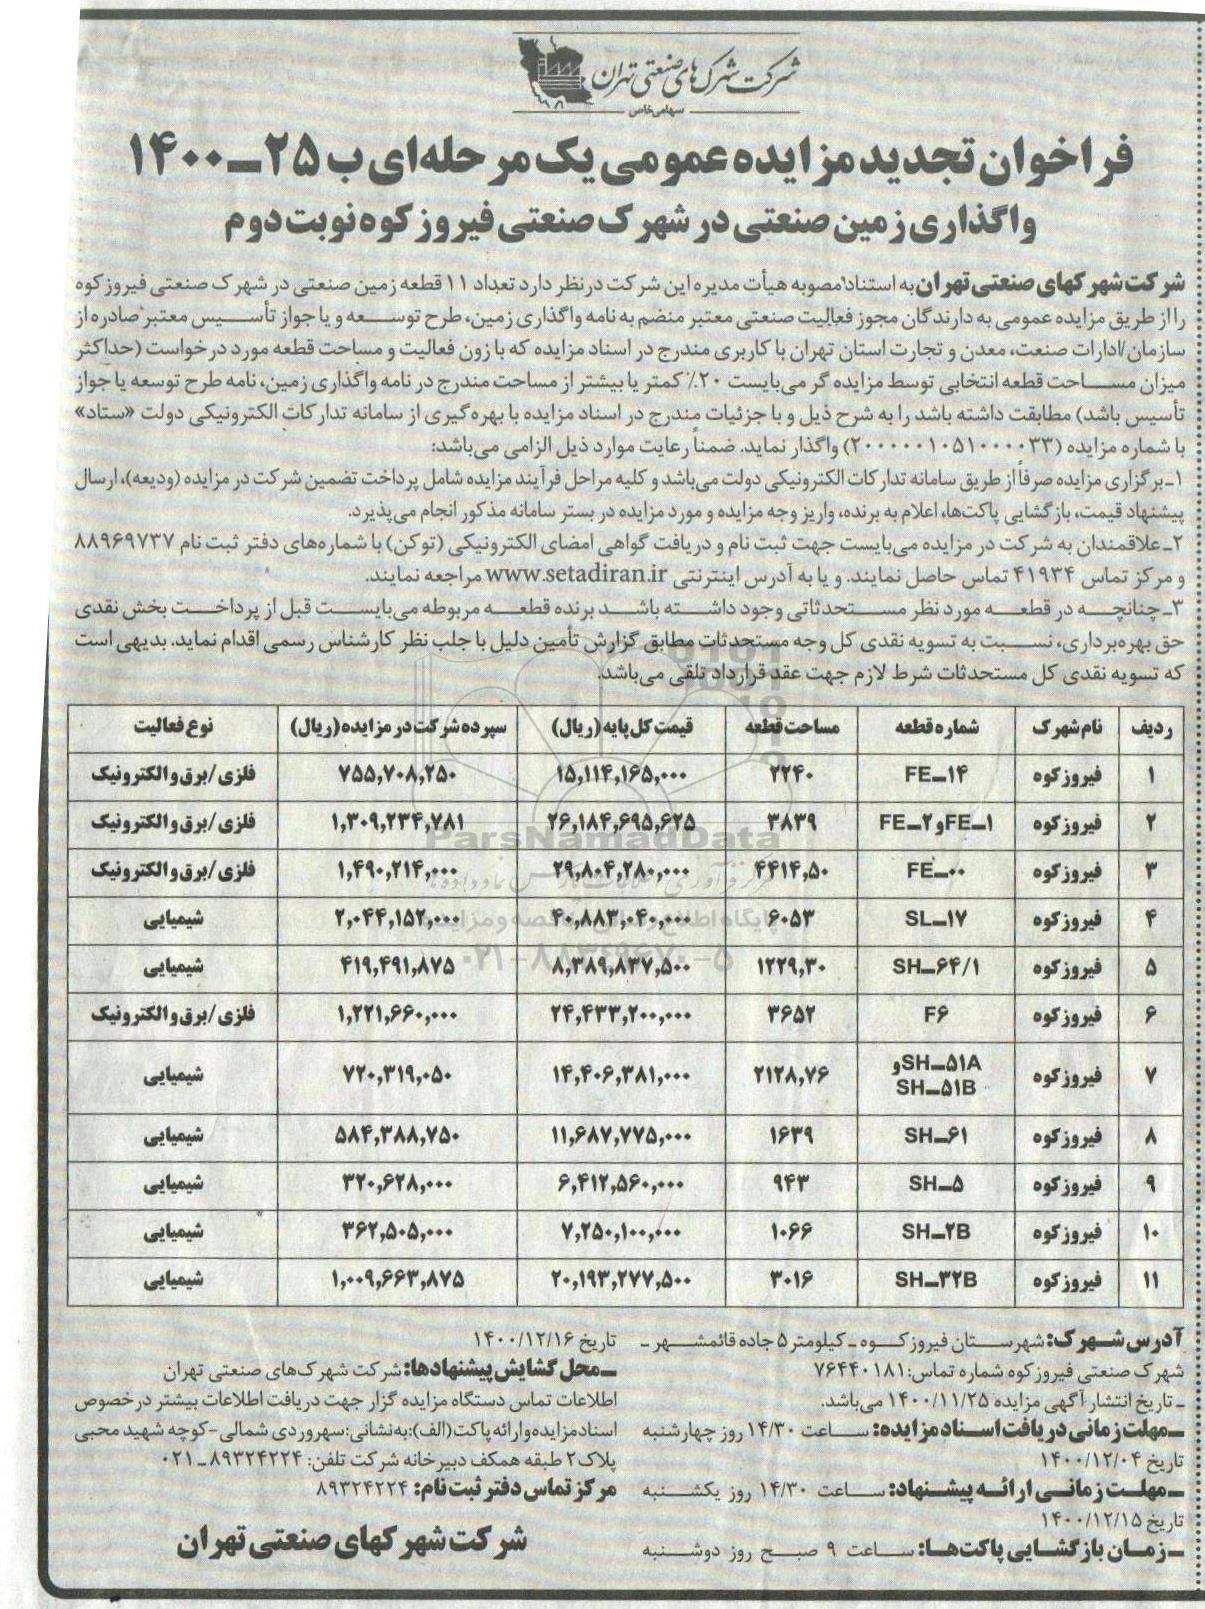 شرکت شهرک‌های صنعتی تهران
سهامی خاص
فراخوان تجدید مزایده عمومی یک مرحله‌ای ب ۲۵ـ۱۴۰۰
واگذاری زمین صنعتی در شهرک صنعتی فیروزکوه نوبت دوم
شرکت شهرکهای صنعتی تهران به استناد مصوبه هیأت مدیره این شرکت درنظر دارد تعداد ۱۱ قطعه زمین صنعتی در شهرک صنعتی فیروزکوه
را از طریق مزایده عمومی به دارندگان مجوز فعالیت صنعتی معتبر منضم به نامه واگذاری زمین، طرح توسعه و یا جواز تأسیس معتبر صادره از
سازمان/ادارات صنعت، معدن و تجارت استان تهران با کاربری مندرج در اسناد مزایده که با زون فعالیت و مساحت قطعه مورد درخواست (حداکثر
میزان مساحت قطعه انتخابی توسط مزایده گر می‌بایست ۲۰٪ کمتر یا بیشتر از مساحت مندرج در نامه واگذاری زمین، نامه طرح توسعه یا جواز
تأسیس باشد) مطابقت داشته باشد را به شرح ذیل و با جزئیات مندرج در اسناد مزایده با بهره‌گیری از سامانه تدارکات الکترونیکی دولت «ستاد»
با شماره مزایده (۲۰۰۰۰۰۱۰۵۱۰۰۰۰۳۳) واگذار نماید. ضمناً رعایت موارد ذیل الزامی می‌باشد:
۱ـ برگزاری مزایده صرفاً از طریق سامانه تدارکات الکترونیکی دولت می‌باشد و کلیه مراحل فرآیند مزایده شامل پرداخت تضمین شرکت در مزایده (ودیعه)، ارسال
پیشنهاد قیمت، بازگشایی پاکت‌ها، اعلام به برنده، واریز وجه مزایده و مورد مزایده در بستر سامانه مذکور انجام می‌پذیرد.
۲ـ علاقمندان به شرکت در مزایده می‌بایست جهت ثبت نام و دریافت گواهی امضای الکترونیکی (توکن) با شماره‌های دفتر ثبت نام ۸۸۹۶۹۷۳۷
و مرکز تماس ۴۱۹۳۴ تماس حاصل نمایند. و یا به آدرس اینترنتی www.setadiran.ir مراجعه نمایند.
۳ـ چنانچه در قطعه مورد نظر مستحدثاتی وجود داشته باشد برنده قطعه مربوطه می‌بایست قبل از پرداخت بخش نقدی
حق بهره‌برداری، نسبت به تسویه نقدی کل وجه مستحدثات مطابق گزارش تأمین دلیل با جلب نظر کارشناس رسمی اقدام نماید. بدیهی است
که تسویه نقدی کل مستحدثات شرط لازم جهت عقد قرارداد تلقی می‌باشد.
ردیف نام شهرک شماره قطعه مساحت قطعه قیمت کل پایه (ریال) سپرده شرکت در مزایده (ریال) نوع فعالیت
۱ فیروزکوه FE_۱۴ ۲۲۴۰ ۱۵,۱۱۴,۱۶۵,۰۰۰ ۷۵۵,۷۰۸,۲۵۰ فلزی/برق و الکترونیک
۲ فیروزکوه FE_۱ و FE_۲ ۳۸۳۹ ۲۶,۱۸۴,۶۹۵,۶۲۵ ۱,۳۰۹,۲۳۴,۷۸۱ فلزی/برق و الکترونیک
۳ فیروزکوه FE_۰۰ ۴۴۱۴,۵۰ ۲۹,۸۰۴,۲۸۰,۰۰۰ ۱,۴۹۰,۲۱۴,۰۰۰ فلزی/برق و الکترونیک
۴ فیروزکوه SL_۱۷ ۶۰۵۳ ۴۰,۸۸۳,۰۴۰,۰۰۰ ۲,۰۴۴,۱۵۲,۰۰۰ شیمیایی
۵ فیروزکوه SH_۶۴/۱ ۱۲۲۹,۳۰ ۸,۳۸۹,۸۳۷,۵۰۰ ۴۱۹,۴۹۱,۸۷۵ شیمیایی
۶ فیروزکوه F۶ ۳۶۵۲ ۲۴,۴۳۳,۲۰۰,۰۰۰ ۱,۲۲۱,۶۶۰,۰۰۰ فلزی/برق و الکترونیک
۷ فیروزکوه SH_۵۱A و SH_۵۱B ۲۱۲۸,۷۶ ۱۴,۴۰۶,۳۸۱,۰۰۰ ۷۲۰,۳۱۹,۰۵۰ شیمیایی
۸ فیروزکوه SH_۶۱ ۱۶۳۹ ۱۱,۶۸۷,۷۷۵,۰۰۰ ۵۸۴,۳۸۸,۷۵۰ شیمیایی
۹ فیروزکوه SH_۵ ۹۴۳ ۶,۴۱۲,۵۶۰,۰۰۰ ۳۲۰,۶۲۸,۰۰۰ شیمیایی
۱۰ فیروزکوه SH_۲B ۱۰۶۶ ۷,۲۵۰,۱۰۰,۰۰۰ ۳۶۲,۵۰۵,۰۰۰ شیمیایی
۱۱ فیروزکوه SH_۳۲B ۳۰۱۶ ۲۰,۱۹۳,۲۷۷,۵۰۰ ۱,۰۰۹,۶۶۳,۸۷۵ شیمیایی
ParsNamadData
۰۲۱-۸۸۳۴۹۶۷۰-۵
آدرس شهرک: شهرستان فیروزکوه ـ کیلومتر ۵ جاده قائمشهر ـ
شهرک صنعتی فیروزکوه شماره تماس: ۷۶۴۴۰۱۸۱
ـ تاریخ انتشار آگهی مزایده ۱۴۰۰/۱۱/۲۵ می‌باشد.
ـ مهلت زمانی دریافت اسناد مزایده: ساعت ۱۴/۳۰ روز چهارشنبه
تاریخ ۱۴۰۰/۱۲/۰۴
ـ مهلت زمانی ارائه پیشنهاد: ساعت ۱۴/۳۰ روز یکشنبه
تاریخ ۱۴۰۰/۱۲/۱۵
ـ زمان بازگشایی پاکت‌ها: ساعت ۹ صبح روز دوشنبه
تاریخ ۱۴۰۰/۱۲/۱۶
ـ محل گشایش پیشنهادها: شرکت شهرک‌های صنعتی تهران
اطلاعات تماس دستگاه مزایده گزار جهت دریافت اطلاعات بیشتر در خصوص
اسناد مزایده و ارائه پاکت (الف): به نشانی: سهروردی شمالی - کوچه شهید محبی
پلاک ۲ طبقه همکف دبیرخانه شرکت تلفن: ۸۹۳۲۴۲۲۴ ـ ۰۲۱
مرکز تماس دفتر ثبت نام: ۸۹۳۲۴۲۲۴
شرکت شهرکهای صنعتی تهران